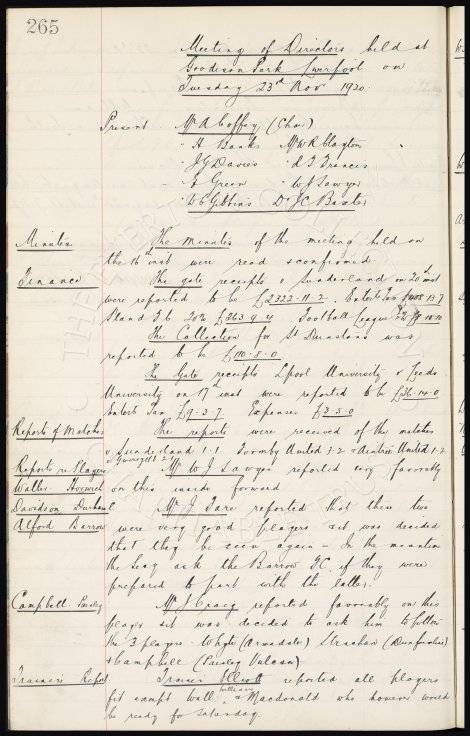 265
Meeting of Directors held at
Goodison Park Liverpool on
Tuesday 23rd Nov 1920.
Present Mr A Coffey (Chair)
" A Banks Mr W R Clayton
" J G Davies " R T Francis
" E Green " W J Sawyer
" W E Gibbins Dr J C Baxter
Minutes The minutes of the meeting held on
the 16th inst were read & confirmed.
Finance The gate receipts v Sunderland on 20th inst
were reported to be £2322-11-2. Entert Tax
Stand Tb 20% £263-9-4 Football League
The Collection for St Dunstans was
reported to be £110-8-0
The Gate receipts L'pool University v Leeds
University on 17th inst were reported to be £36-14-0
Entert Tax £9-3-7 Expenses £3-5-0
Reports of Matches The reports were received of the matches
v Sunderland 1-1 Formby United 3-2 v Aintree United 1-2
Reports re Players Mr W J Sawyer reported very favorably
Waller Horwich on this inside forward
Davidson Durham Mr J Fare reported that these two
Alford Barrow were very good players & it was decided
that they be seen again - In the meantime
the Secy ask the Barrow FC if they were
prepared to part with the latter.
Campbell Paisley Mr J Craig reported favorably on this
player & it was decided to ask him to follow
the 3 players - Whyte (Armadale) Strachan (Dunfermline)
& Campbell (Paisley Vulcan)
Trainers Report Trainer Elliott reported all players
fit except Wall williams & Macdonald who however would
be ready for Saturday.